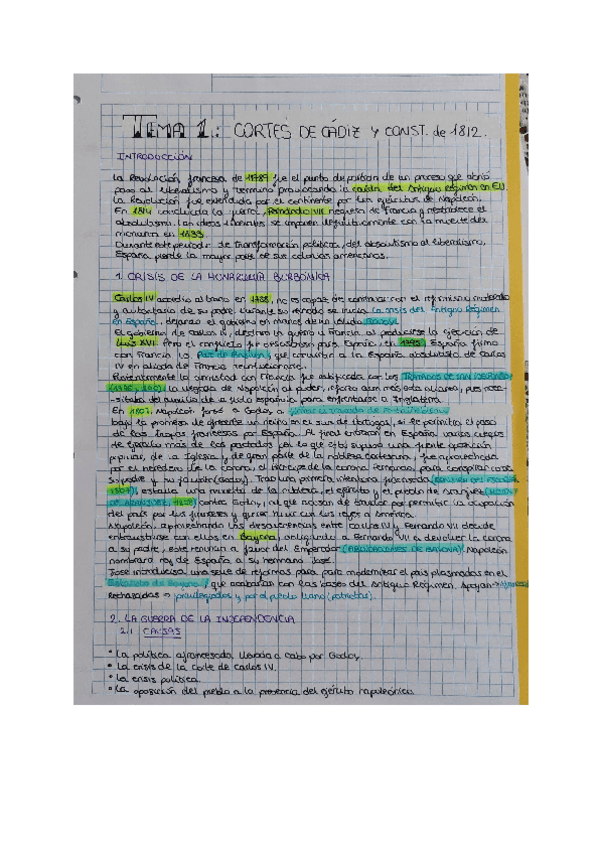 TEMA 1: CORTES DE CÁDIZ Y CONST. de 1812.
INTRODUCCIÓN
La Revolución francesa de 1789 fue el punto de partida de un proceso que abrió
paso al liberalismo y terminó provocando la caída del Antiguo régimen en EU.
La Revolución fue extendida por el continente por los ejércitos de Napoleón.
En 1814 concluida la guerra, Fernando VII regresa de Francia y restablece el
absolutismo. Las ideas liberales se imponen definitivamente con la muerte del
monarca en 1833.
Durante este periodo de transformación política, del absolutismo al liberalismo,
España pierde la mayor parte de sus colonias americanas.
1. CRISIS DE LA MONARQUÍA BORBÓNICA
Carlos IV accedió al trono en 1788, no es capaz de continuar con el reformismo moderado
y autoritario de su padre. Durante su reinado se inicia la crisis del Antiguo Régimen
en España, dejando el gobierno en manos de un valido Godoy.
El gobierno de Carlos IV declaró la guerra a Francia al producirse la ejecución de
Luis XVI. Pero el conflicto fue desastroso para España, en 1795, España firmó
con Francia la Paz de Basilea, que convirtió a la España absolutista de Carlos
IV en aliada de Francia revolucionaria.
Posteriormente la amistad con Francia fue ratificada con los Tratados de San Ildefonso
la llegada de Napoleón al poder, reforzó aún más esta alianza, pues nece-
-sitaba del auxilio de la flota española para enfrentarse a Inglaterra.
En 1807, Napoleón forzó a Godoy a firmar el Tratado de Fontainebleau
bajo la promesa de ofrecerle un reino en el sur de Portugal, si se permitía el paso
de las tropas francesas por España. Al final entraron en España varios cuerpos
de ejército más de los pactados por lo que esto supuso una fuerte oposición
popular, de la Iglesia y de gran parte de la nobleza cortesana, fue aprovechada
por el heredero de la corona, el príncipe de la corona Fernando, para conspirar contra
su padre y su valido (Godoy). Tras una primera intentona fracasada
1807), estalla una revuelta de la nobleza, el ejército y el pueblo de Aranjuez
DE ARANJUEZ, 1808) contra Godoy, al que acusan de traidor por permitir la ocupación
del país por los franceses y querer huir con los reyes a América.
Napoleón, aprovechando las desavenencias entre Carlos IV y Fernando VII decide
entrevistarse con ellos en Bayona, obligando a Fernando VII a devolver la corona
a su padre, este renuncia a favor del Emperador (ABDICACIONES DE BAYONA) Napoleón
nombrará rey de España a su hermano José.
José introducirá una serie de reformas para modernizar el país plasmadas en el
Estatuto de Bayona, que acabarían con las bases del Antiguo Régimen. Apoyan
Rechazadas → privilegiados y por el pueblo llano (patriotas).
2. LA GUERRA DE LA INDEPENDENCIA
2.1 CAUSAS
• La política afrancesada llevada a cabo por Godoy.
• La crisis de la corte de Carlos IV.
• La crisis política.
• La oposición del pueblo a la presencia del ejército napoleónico.